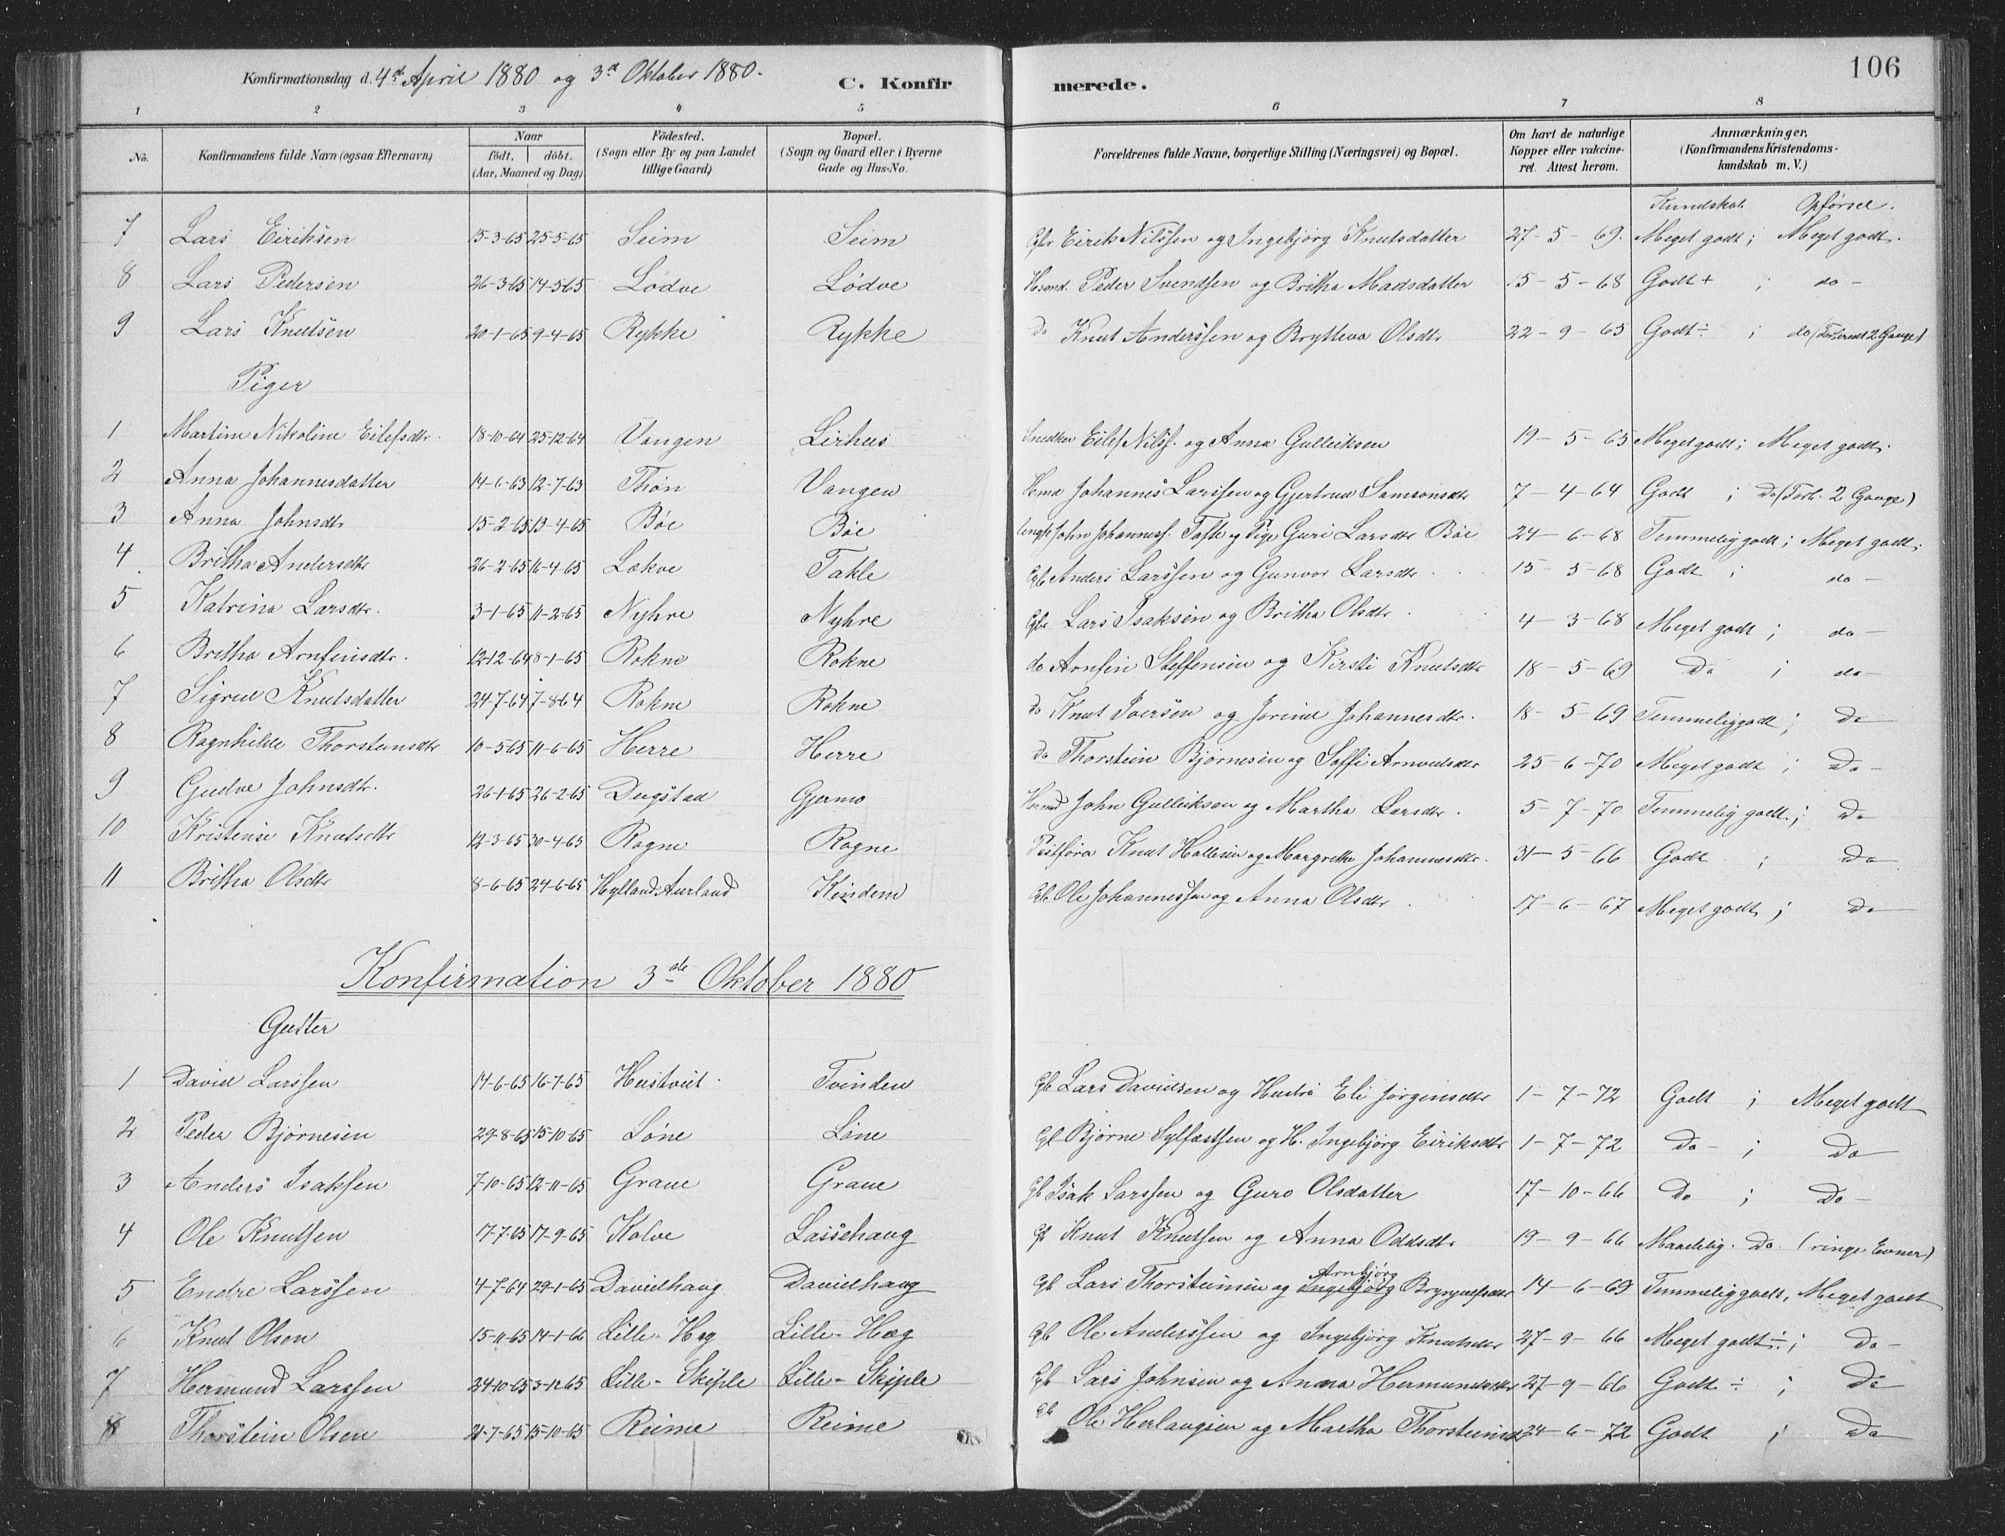 Konfirmationsdag d. 4de April 1880 og 3de Oktober 1880.
C. Konfirmerede.
106
1 2 3 4 5 6 7 8
No.
Konfirmandens fulde Navn (ogsaa Efternavn)
Naar
födt, döbt.
(Aar, Maaned og Dag)
Födested.
(Sogn eller By og paa Landet
tillige Gaard)
Bopæl.
(Sogn og Gaard eller i Byerne
Gade og Hus-No.
Forældrenes fulde Navne, borgerlige Stilling (Næringsvei) og Bopæl.
Om havt de naturlige
Kopper eller vakcine-
ret. Attest herom.
Anmærkninger.
(Konfirmandens Kristendoms-
kundskab m. V.)
Kundskab. Opførsel.
7 Lars Eiriksen 15-3-65 25-5-65 Seim Seim Gbr Eirik Nilssen og Ingebjörg Knutsdatter 27-5-69. Meget godt; Meget godt.
8 Lars Pedersen 26-3-65 14-5-65 Lødve Lødve Hsmd. Peder Svendsen og Britha Madsdatter 15-5-68 Godt + ; do -
9 Lars Knutsen 20-1-65 9-4-65 Rykke Rykke do Knut Anderssen og Brytteva Olsdtr 22-9-65 Godt ÷ ; do 2 Gange)
Piger
1 Martine Nikoline Eilefsdtr. 18-10-64 25-12-64 Vangen Lirhus Snedker Eilef Nilss. og Anna Gulliksen 19-5-65 Meget godt; Meget godt.
2 Anna Johannesdatter 14-6-63 12-7-63 Thön Vangen Hsmd Johannes Larssen og Gjertrud Samsonsdtr 7-4-64 Godt ; do (Forb. 2 Gange)
3 Anna Johnsdtr 15-2-65 13-4-65 Böe Böe Ungk. John Johanness. Tofte og Pige Guri Larsdtr Böe 24-6-68 Temmelig godt; Meget godt;
4 Britha Andersdtr 26-2-65 16-4-65 Lekve Takle Gb Anders Larssen og Gunvor Larsdtr 15-5-68 Godt ; do -
5 Katrina Larsdtr. 3-1-65 11-2-65 Nyhre Nyhre Gbr Lars Isaksen og Britha Olsdtr. 4-3-68 Meget godt ; do -
6 Britha Arnfinsdtr. 12-12-64 8-1-65 Rokne Rokne do Arnfin Steffensen og Kirsti Knutsdtr 18-5-69 Do ; do -
7 Sigrid Knutsdatter 24-7-64 7-8-64 Rokne Rokne do Knut Iversen og Jorind Johannesdtr. 18-5-69 Temmelig godt ; Do
8 Ragnhilde Thorsteinsdtr 10-5-65 11-6-65 Herre Herre do Thorstein Björnesen og Soffi Arnvedsdtr 25-6-70 Meget godt ; Do -
9 Gudve Johnsdtr. 26-1-65 26-2-65 Dugstad Gjermo Hsmd John Gulleiksen og Martha Larsdtr. 5-7-70 Temmelig godt. ; Do
10 Kristense Knutsdtr 12-3-65 30-4-65 Rogne Rogne Postföra Knut Hallesen og Margretha Johannesdtr. 31-5-66 Godt ; Do
11 Britha Olsdtr 8-6-65 24-6-65 Hylland, Aurland Kindem Gb. Ole Johannessen og Anna Olsdtr 17-6-67 Meget godt ; Do
Konfirmation 3de Oktober 1880
Gutter
1 David Larssen 14-6-65 16-7-65 Hustveit. Tvinden Gb Lars Davidsen og Hustru Eli Jörgensdtr 1-7-72 Godt ; Meget godt
2 Peder Björnesen 29-8-65 15-10-65 Löne Löne Gb Björne Sylfæstsen og H. Ingebjörg Eiriksdtr 1-7-72 Do - ; Do
3 Anders Isaksen 7-10-65 12-11-65 Graue Graue Gb Isak Larssen og Guro Olsdatter 17-10-66 Do ; Do -
4 Ole Knutsen 17-7-65 17-9-65 Kolve Lassehaug Gb Knut Knutsen og Anna Oddsdtr 19-9-66 Maadelig. Do. (ringe Evner)
5 Endre Larssen 4-7-64 29-1-65 Davidhaug Davidhaug Gb Lars Thorsteinsen og Arnbjörg Ingebjörg Brynjulfsdtr 14-6-69 Temmelig godt, Meget godt
6 Knut Olsen 15-11-65 14-1-66 Lille-Hæg Lille-Hæg Gb Ole Anderssen og Ingebjörg Knutsdtr 27-9-66 Meget godt ÷ ; Do -
7 Hermund Larssen 24-10-65 3-12-65 Lille-Skiple Lille-Skiple Gb Lars Johnsen og Anna Hermundsdtr 27-9-66 Godt ÷ ; Do
8 Thorstein Olsen 21-7-65 15-10-65 Reime Reime Gb Ole Herlaugsen og Martha Thorsteinsd 24-6-72 Godt ; Do